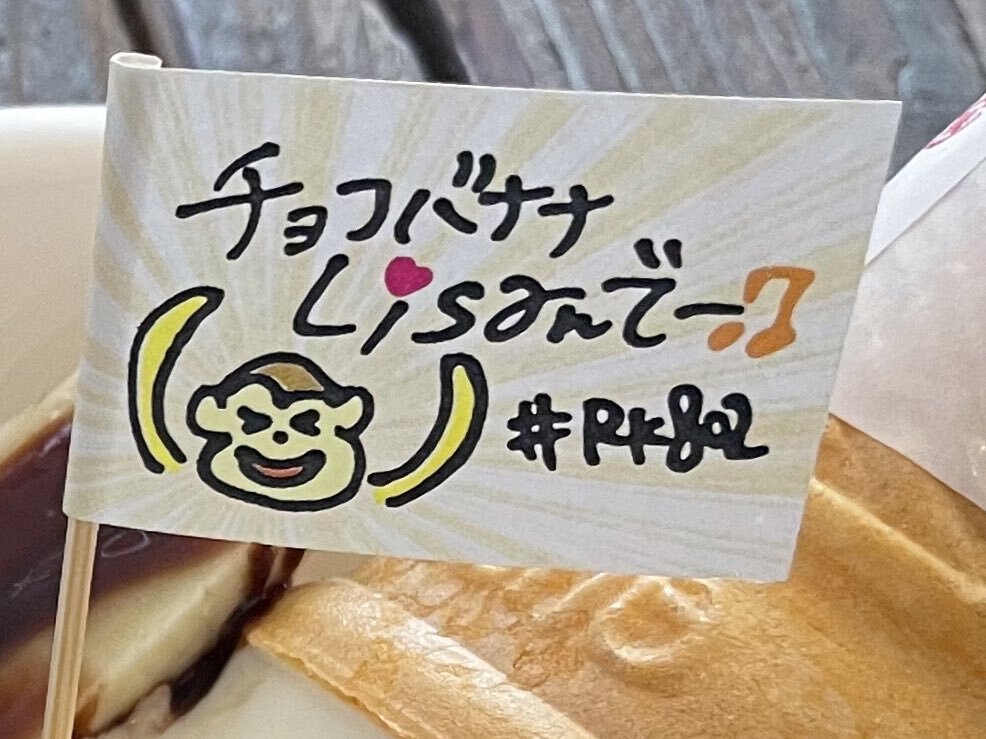 チョコバナナ
Lisaんでー♫
#RK802